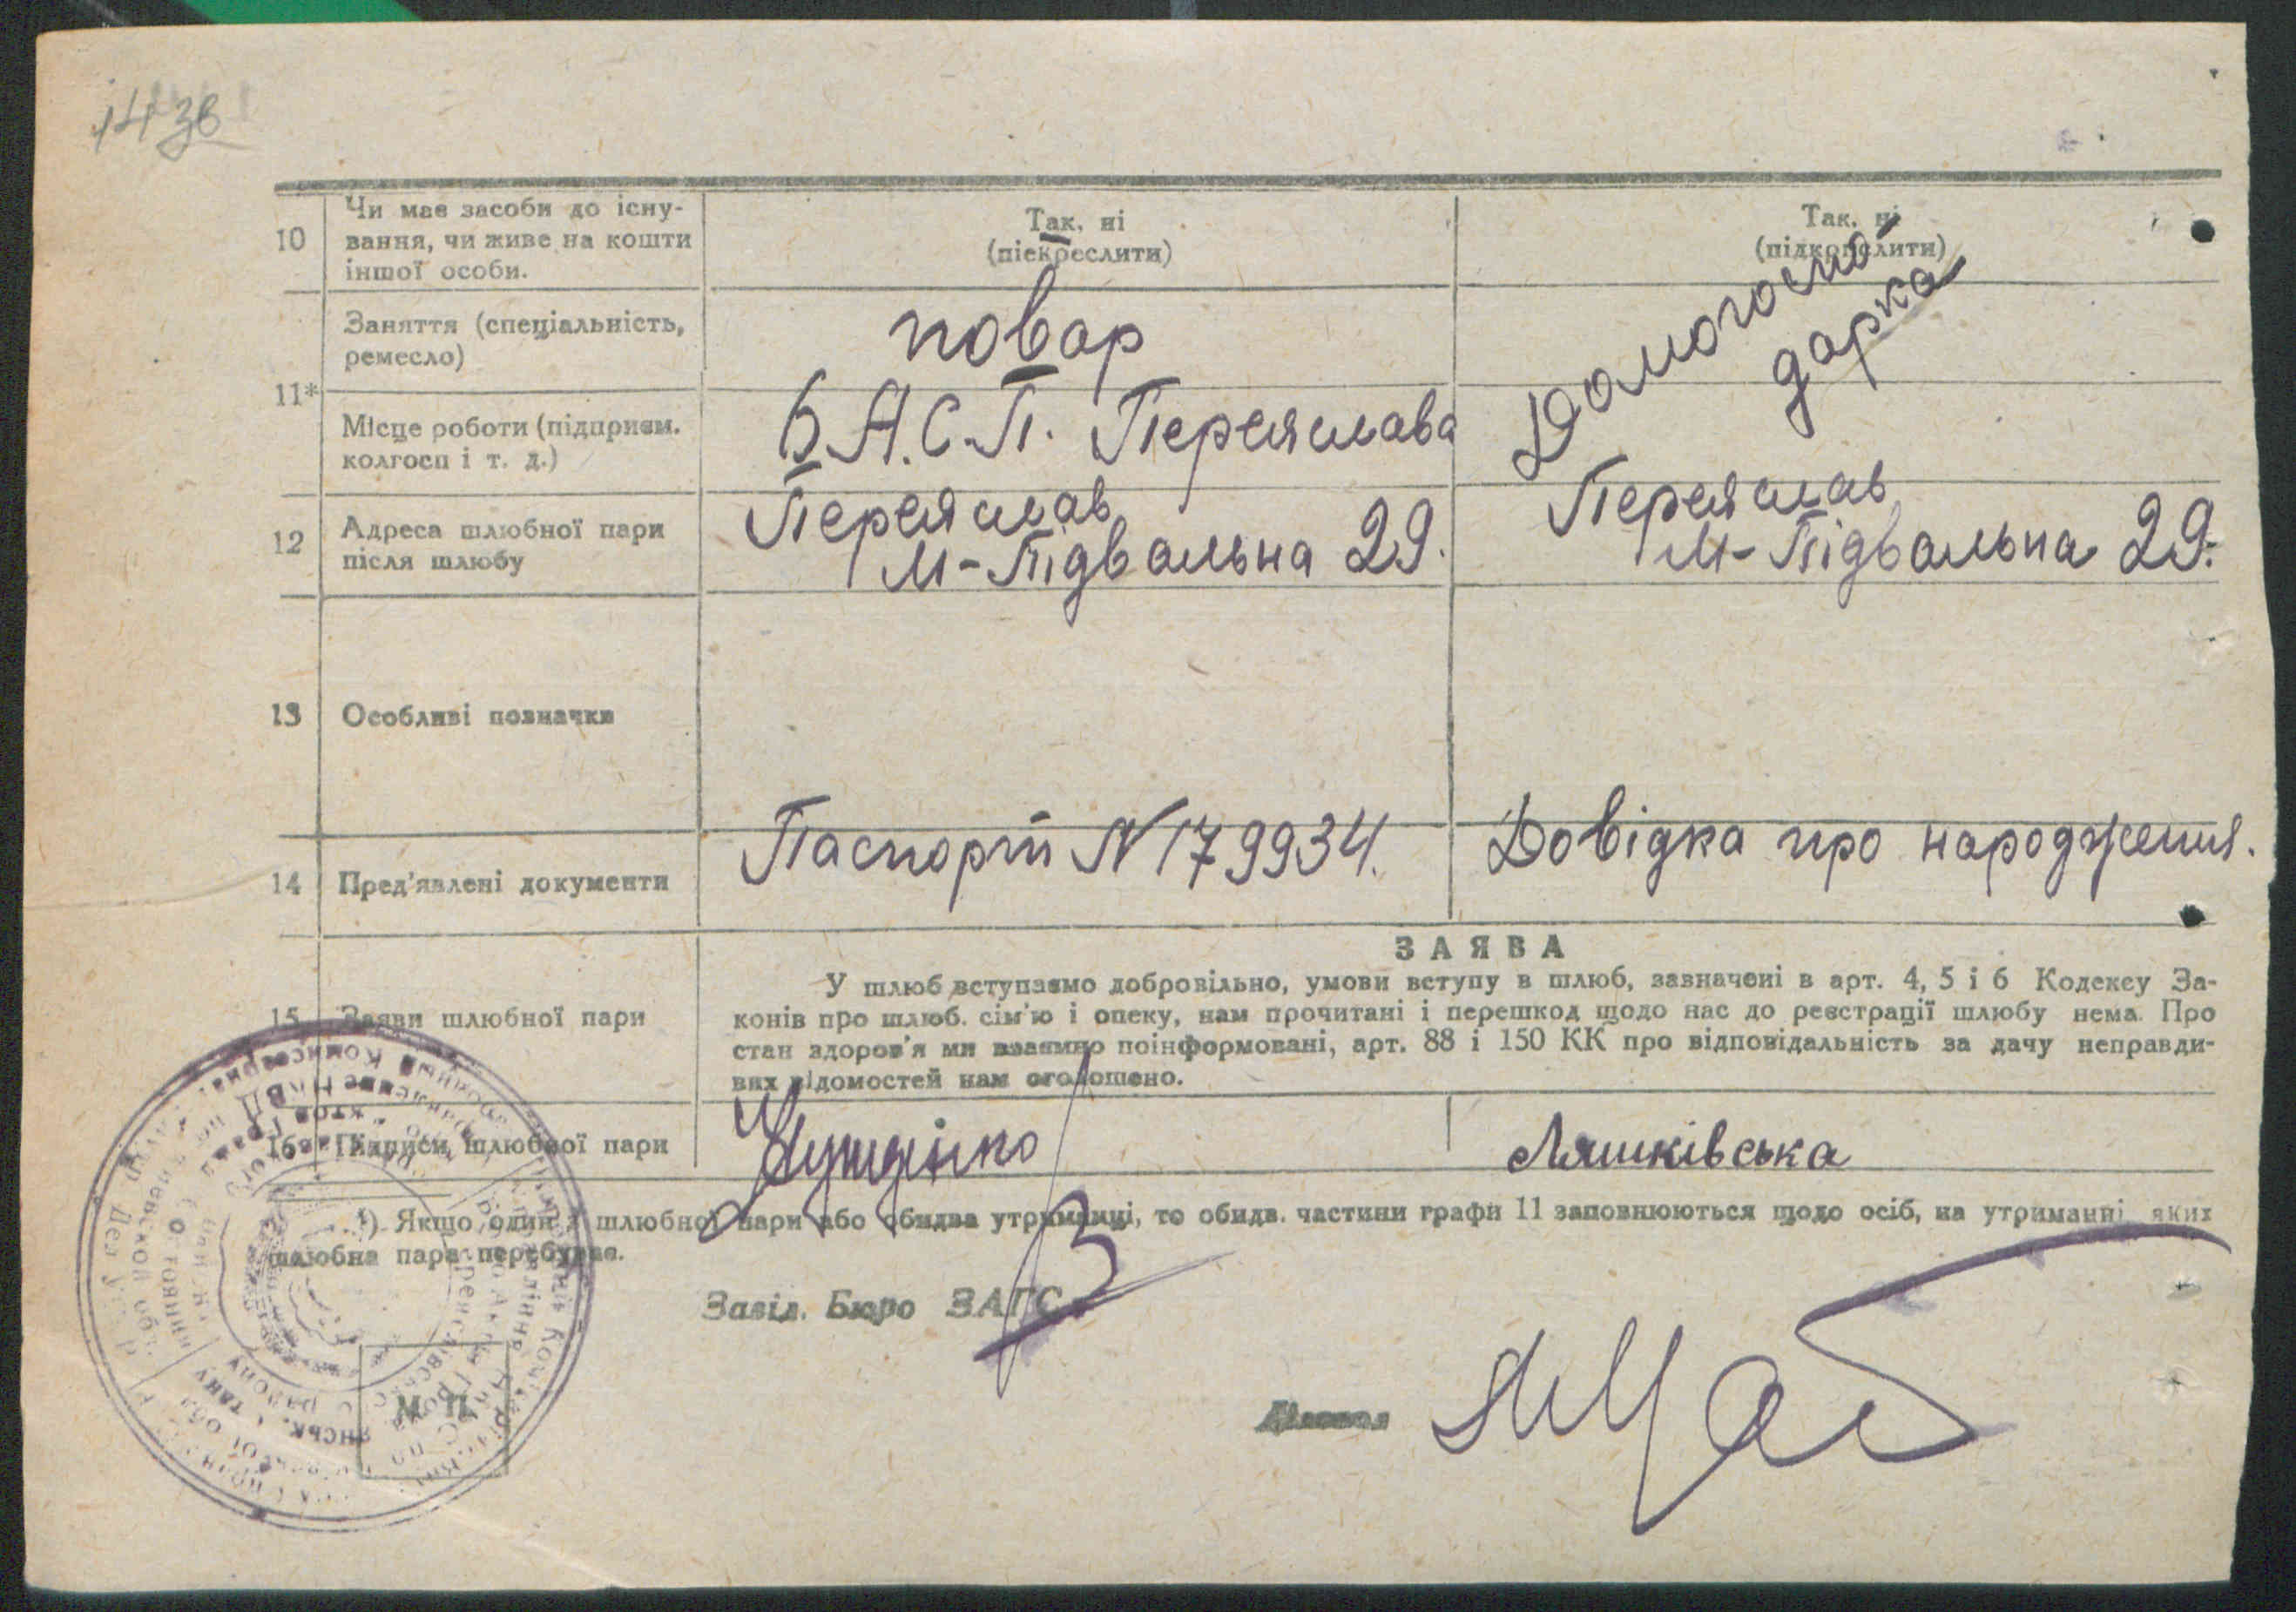 14 зв
10 Чи має засоби до існу-
вання, чи живе на кошти
іншої особи.
Так, ні
(піекреслити)
Так, ні
(підкреслити)
11*
Заняття (спеціальність,
ремесло)
повар
Домогоспо
дарка
Місце роботи (підприєм.
колгосп і т. д.)
Б.А.С.П. Переяслава
12 Адреса шлюбної пари
після шлюбу
Переяслав
М-Підвальна 29.
Переяслав
М-Підвальна 29.
13 Особливі позначки
14 Пред'явлені документи
Паспорт N 179934.
Довідка про народження.
15 Заяви шлюбної пари
ЗАЯВА
У шлюб вступаємо добровільно, умови вступу в шлюб, зазначені в арт. 4, 5 і 6 Кодексу За-
конів про шлюб. сім'ю і опеку, нам прочитані і перешкод щодо нас до реєстрації шлюбу нема. Про
стан здоров'я ми взаємно поінформовані, арт. 88 і 150 КК про відповідальність за дачу неправди-
вих відомостей нам оголошено.
16 Підписи шлюбної пари
Ляшківська
*) Якщо один з шлюбної пари або обидва утриманці, то обидв. частини графи 11 заповнюються щодо осіб, на утриманні яких
шлюбна пара перебуває.
Завід. Бюро ЗАГС
М. П.